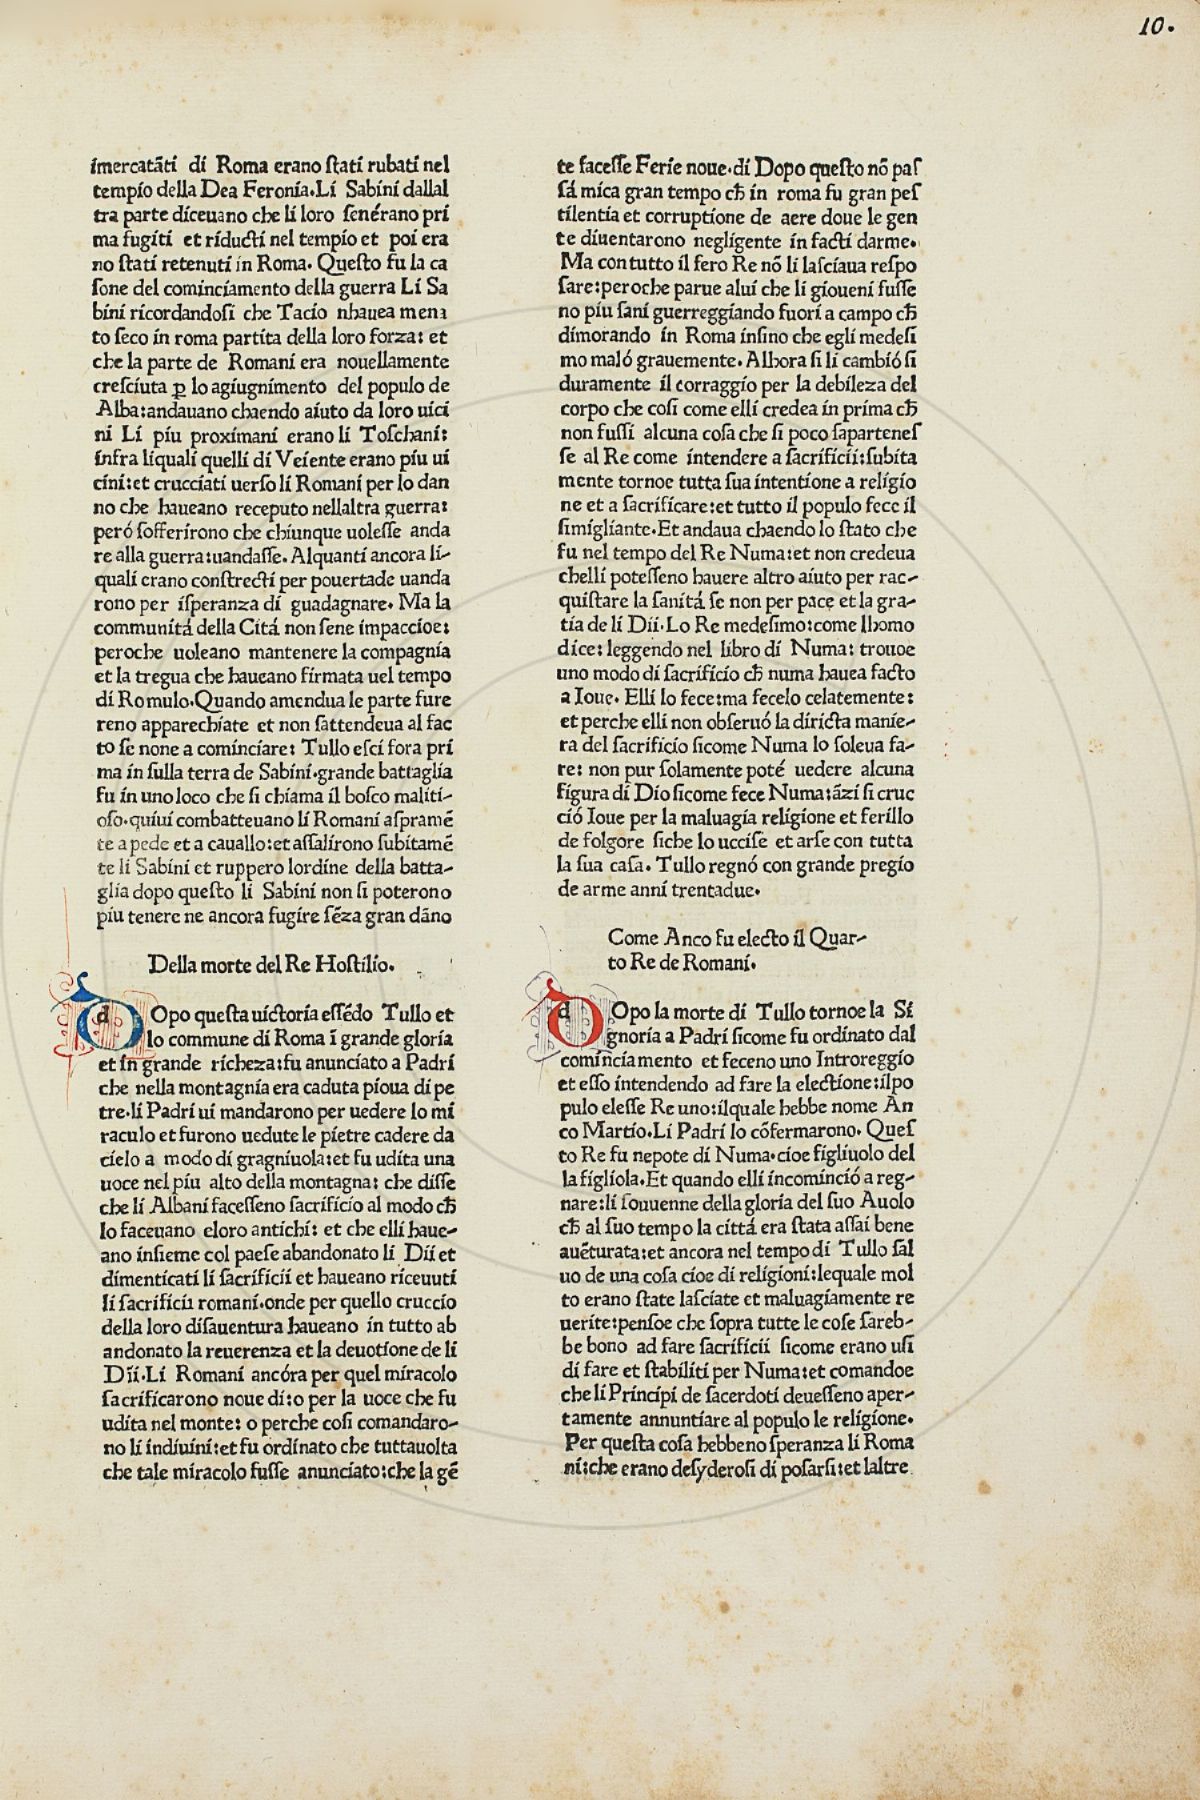 10.
imercatãti di Roma erano ſtati rubati nel
tempio della Dea Feronia.Li Sabini dallal
tra parte diceuano che li loro ſenérano pri
ma fugiti et riducti nel tempio et poi era
no ſtati retenuti in Roma. Queſto fu la ca
ſone del cominciamento della guerra Li Sa
bini ricordandoſi che Tacio nhauea mena
to ſeco in roma partita della loro forza: et
che la parte de Romani era nouellamente
creſciuta ꝑ lo agiugnimento del populo de
Alba:andauano chaendo aiuto da loro uici
ni Li piu proximani erano li Toſchani:
infra liquali quelli di Veiente erano piu ui
cini:et crucciati uerſo li Romani per lo dan
no che haueano receputo nellaltra guerra:
peró ſofferirono che chiunque uoleſſe anda
re alla guerra:uandaſſe. Alquanti ancora li-
quali erano conſtrecti per pouertade uanda
rono per iſperanza di guadagnare. Ma la
communitá della Citá non ſene impaccioe:
peroche uoleano mantenere la compagnia
et la tregua che haueano firmata uel tempo
di Romulo.Quando amendua le parte fure
reno apparechiate et non ſattendeua al fac
to ſe none a cominciare: Tullo eſci fora pri
ma in ſulla terra de Sabini.grande battaglia
fu in uno loco che ſi chiama il boſco maliti-
oſo.quiui combatteuano li Romani aſpramẽ
te a pede et a cauallo:et aſſalirono ſubitamẽ
te li Sabini et ruppero lordine della batta-
glia dopo queſto li Sabini non ſi poterono
piu tenere ne ancora fugire ſẽza gran dãno
Della morte del Re Hoſtilio.
dOpo queſta uictoria eſſẽdo Tullo et
lo commune di Roma ĩ grande gloria
et in grande richeza:fu anunciato a Padri
che nella montagnia era caduta pioua di pe
tre.li Padri ui mandarono per uedere lo mi
raculo et furono uedute le pietre cadere da
cielo a modo di gragniuola:et fu udita una
uoce nel piu alto della montagna: che diſſe
che li Albani faceſſeno ſacrificio al modo cħ
lo faceuano eloro antichi: et che elli haue-
ano inſieme col paeſe abandonato li Dii et
dimenticati li ſacrificii et haueano riceuuti
li ſacrificii romani.onde per quello cruccio
della loro diſauentura haueano in tutto ab
andonato la reuerenza et la deuotione de li
Dii.Li Romani ancóra per quel miracolo
ſacrificarono noue di:o per la uoce che fu
udita nel monte: o perche coſi comandaro-
no li indiuini:et fu ordinato che tuttauolta
che tale miracolo fuſſe anunciato:che la gẽ
te faceſſe Ferie noue.di Dopo queſto nõ paſ
ſá mica gran tempo cħ in roma fu gran peſ
tilentia et corruptione de aere doue le gen
te diuentarono negligente in facti darme.
Ma con tutto il fero Re nõ li laſciaua reſpo
ſare:peroche parue alui che li gioueni fuſſe
no piu ſani guerreggiando fuori a campo cħ
dimorando in Roma inſino che egli medeſi
mo maló grauemente. Alhora ſi li cambió ſi
duramente il corraggio per la debileza del
corpo che coſi come elli credea in prima cħ
non fuſſi alcuna coſa che ſi poco ſaparteneſ
ſe al Re come intendere a ſacrificii:ſubita
mente tornoe tutta ſua intentione a religio
ne et a ſacrificare:et tutto il populo fece il
ſimigliante.Et andaua chaendo lo ſtato che
fu nel tempo del Re Numa:et non credeua
chelli poteſſeno hauere altro aiuto per rac-
quiſtare la ſanitá ſe non per pace et la gra-
tia de li Dii.Lo Re medeſimo:come lhomo
dice: leggendo nel libro di Numa: trouoe
uno modo di ſacrificio cħ numa hauea facto
a Ioue. Elli lo fece:ma fecelo celatemente:
et perche elli non obſeruó la diricta manie-
ra del ſacrificio ſicome Numa lo ſoleua fa-
re: non pur ſolamente poté uedere alcuna
figura di Dio ſicome fece Numa:ãzi ſi cruc
ció Ioue per la maluagia religione et ferillo
de folgore ſiche lo ucciſe et arſe con tutta
la ſua caſa. Tullo regnó con grande pregio
de arme anni trentadue.
Come Anco fu electo il Quar-
to Re de Romani.
dOpo la morte di Tullo tornoe la Si
gnoria a Padri ſicome fu ordinato dal
cominciamento et feceno uno Introreggio
et eſſo intendendo ad fare la electione:ilpo
pulo eleſſe Re uno:ilquale hebbe nome An
co Martio.Li Padri lo cõfermarono. Queſ
to Re fu nepote di Numa.cioe figliuolo del
la figliola.Et quando elli incominció a reg-
nare:li ſouuenne della gloria del ſuo Auolo
cħ al ſuo tempo la cittá era ſtata aſſai bene
auẽturata:et ancora nel tempo di Tullo ſal
uo de una coſa cioe di religioni:lequale mol
to erano ſtate laſciate et maluagiamente re
uerite:penſoe che ſopra tutte le coſe ſareb-
be bono ad fare ſacrificii ſicome erano uſi
di fare et ſtabiliti per Numa:et comandoe
che li Principi de ſacerdoti deueſſeno aper-
tamente annuntiare al populo le religione.
Per queſta coſa hebbeno ſperanza li Roma
ni:che erano deſyderoſi di poſarſi:et laltre